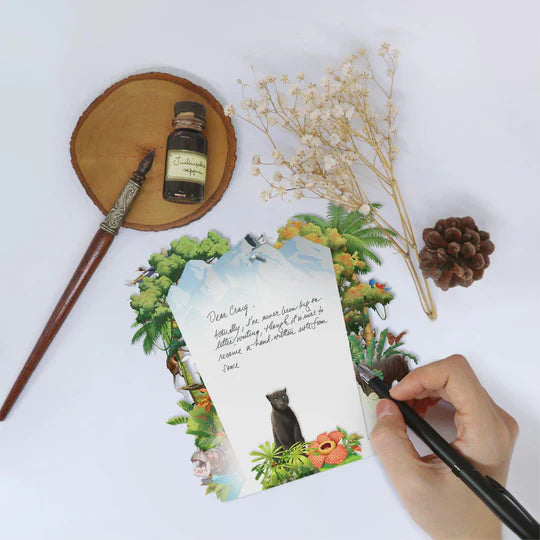 Dear Craig,
Actually, I've never been big on
letter writing, though it is nice to
receive a hand written note from
some